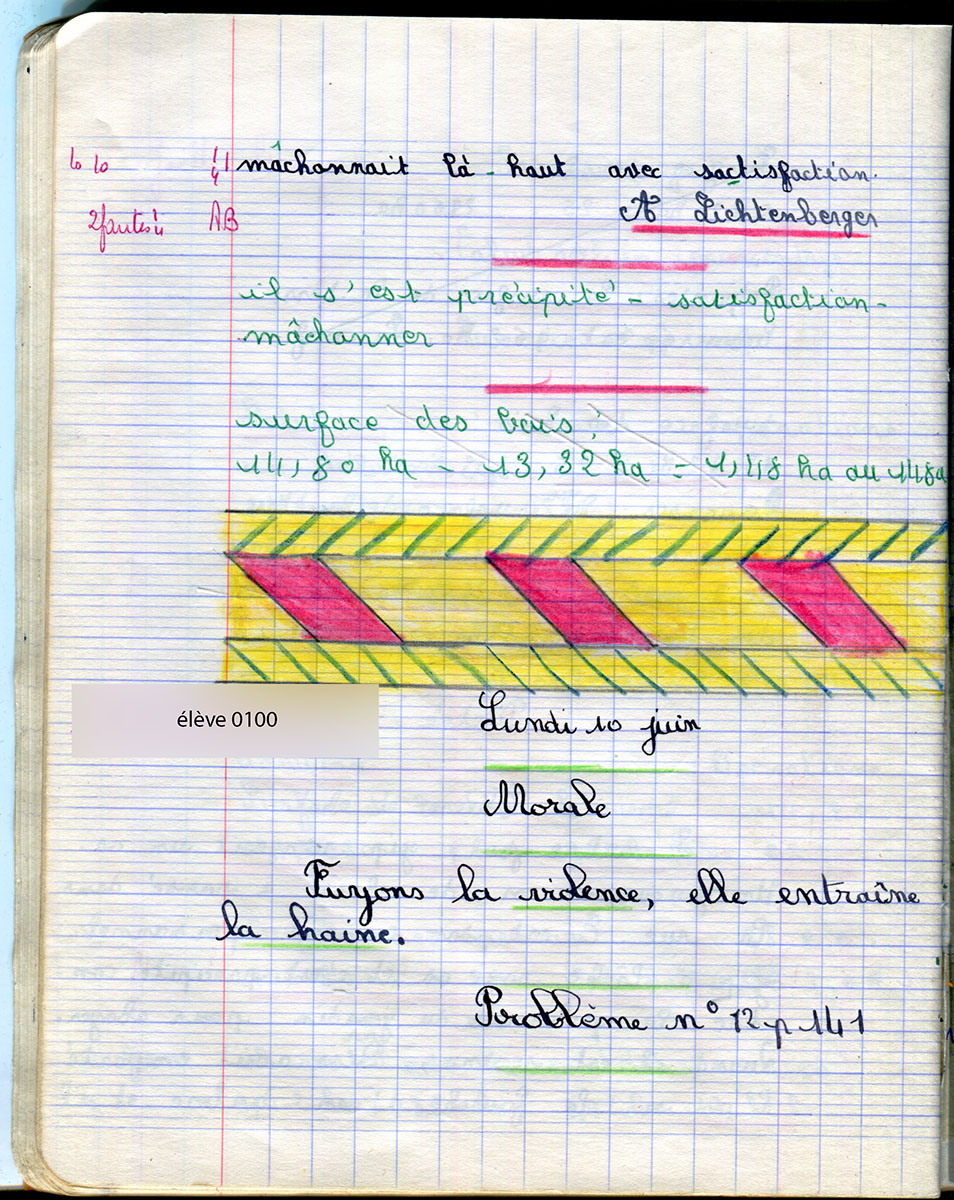 mâchonnait là-haut avec sactisfaction.
2 fautes AB
A Lichtenberger
il s'est précipité - satisfaction -
mâchonner
surface des bois :
14,80 ha - 13,32 ha = 1,48 ha ou 148a
élève 0100
Lundi 10 juin
Morale
Fuyons la violence, elle entraîne
la haine.
Problème n° 12 p 141